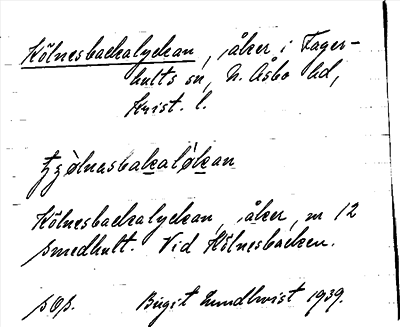 Kölnesbackalyckan, åker i Fager-
hults sn, N. Åsbo hd,
Krist. l.
tjölnasbakalökan
Kölnesbackalyckan, åker, nr 12
Smedhult. Vid Kölnesbacken.
Birgit Lundkvist 1939.